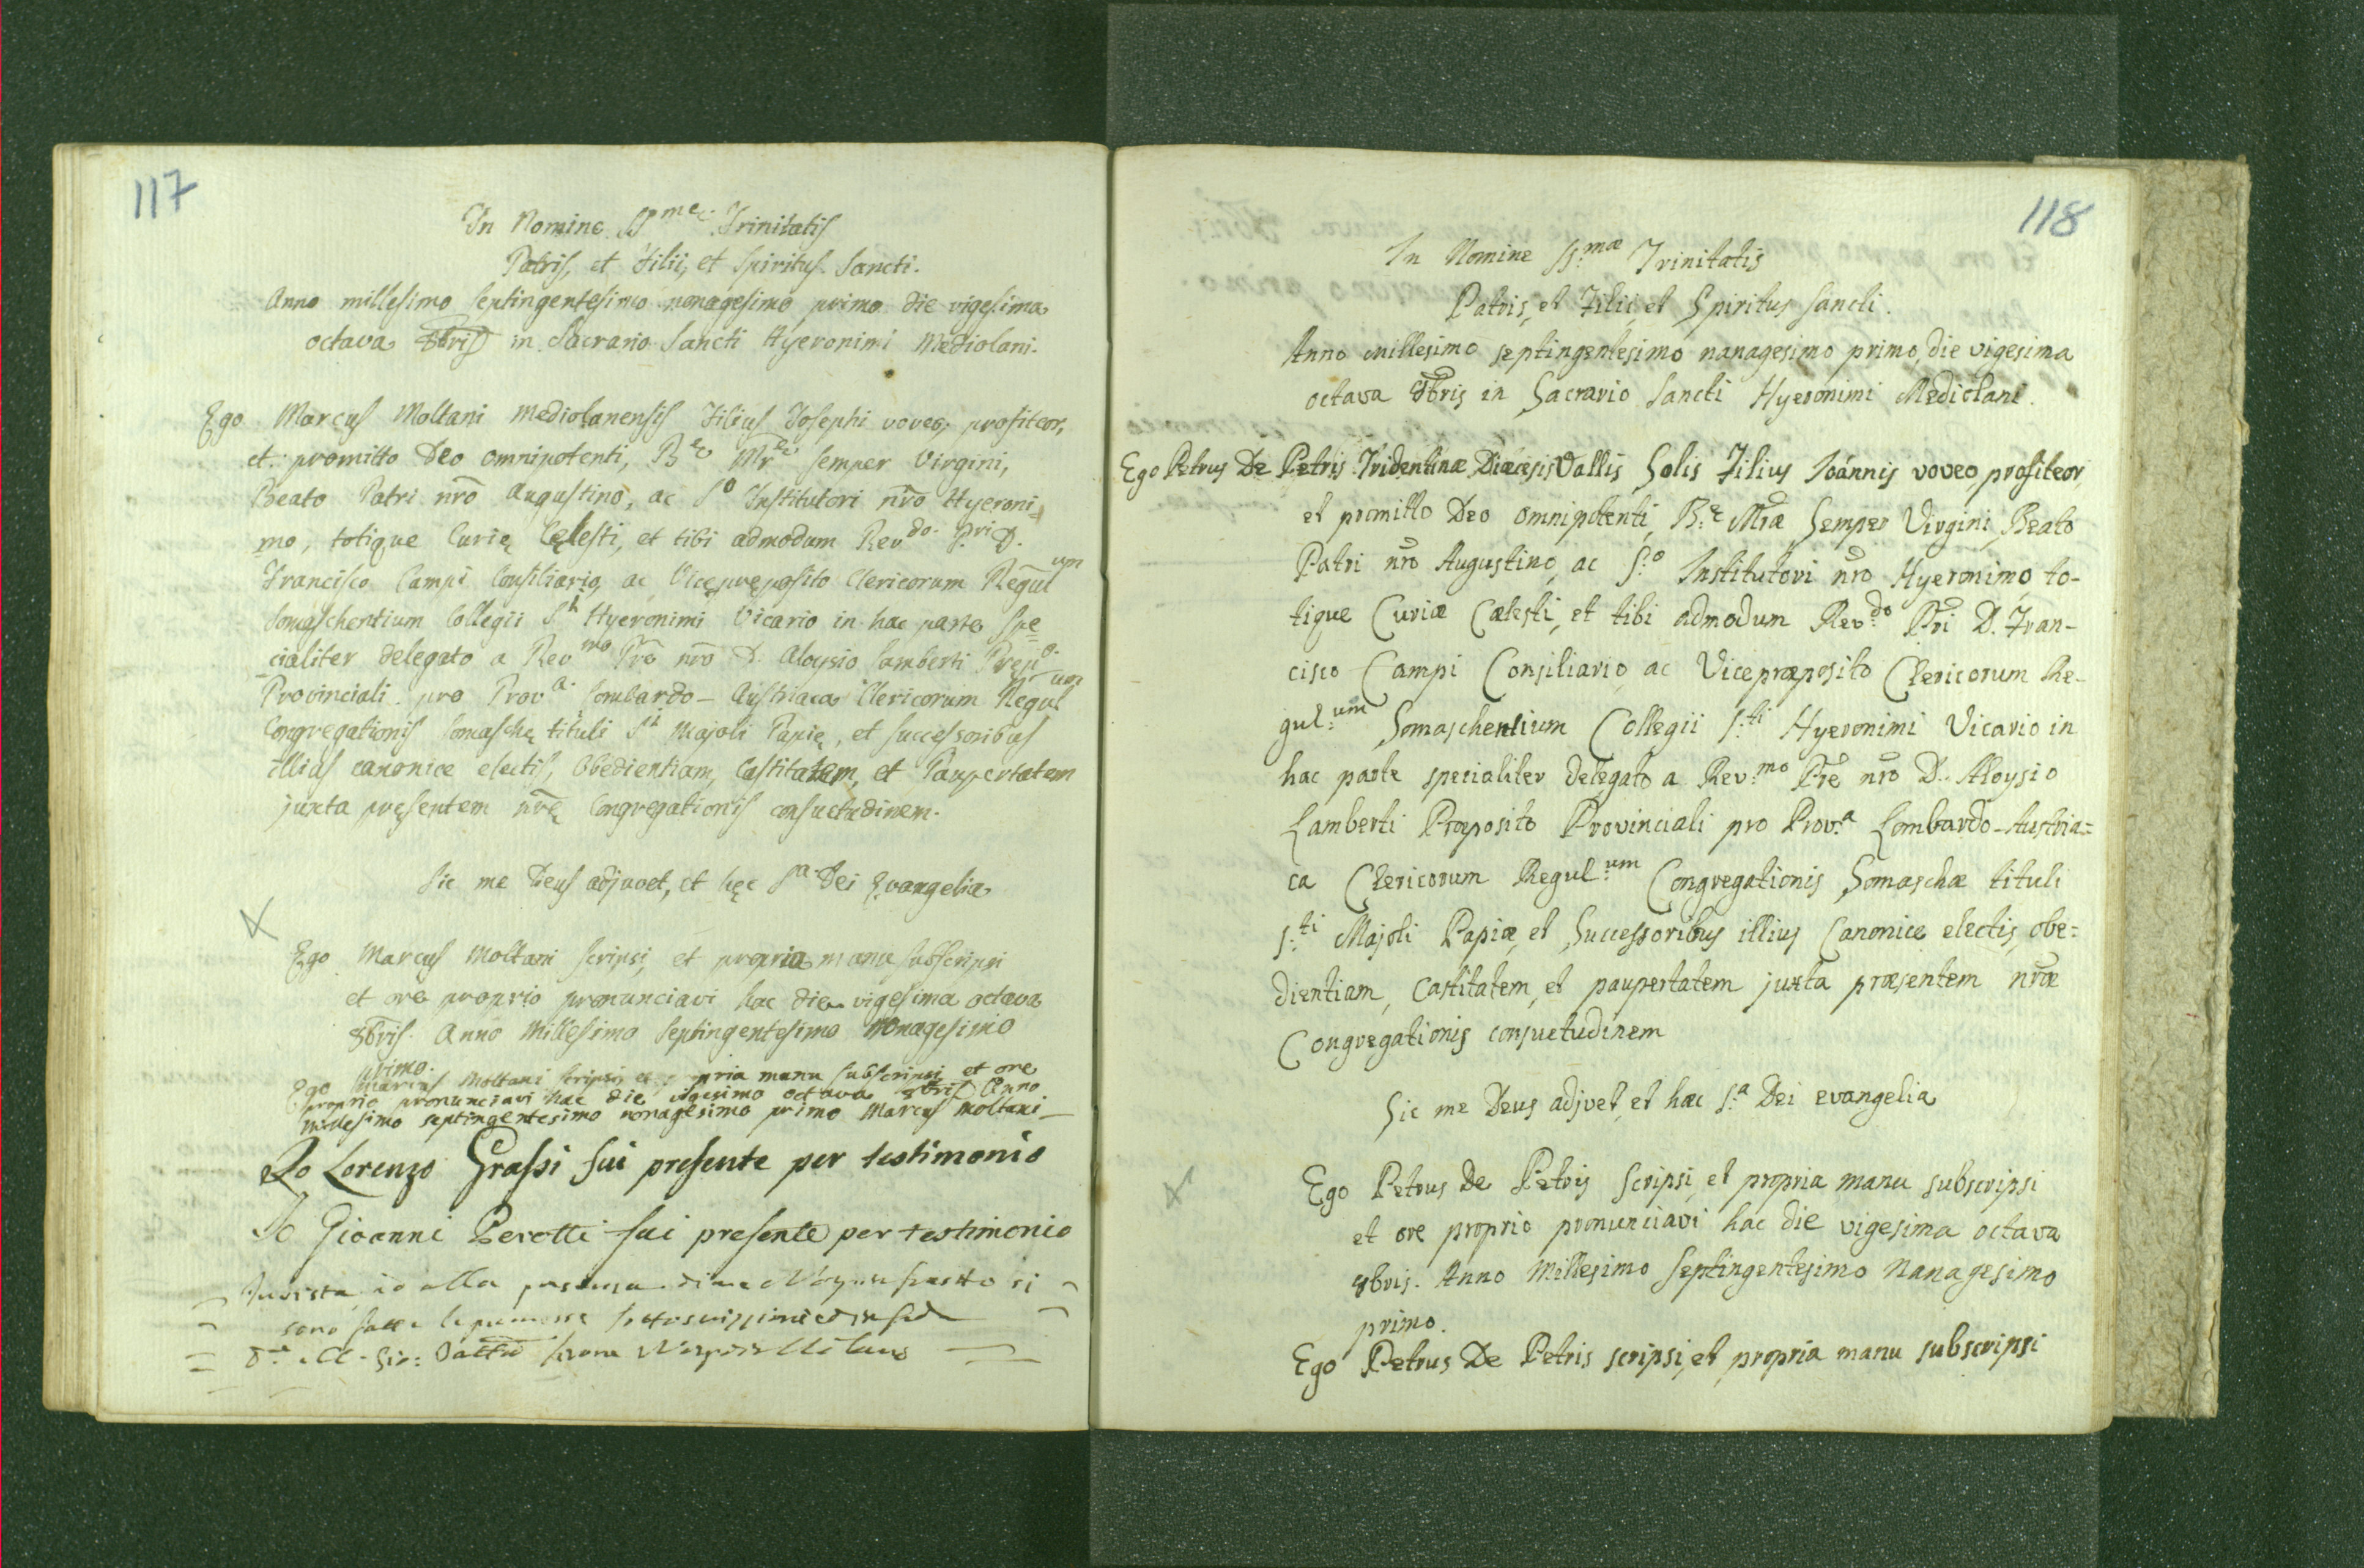 117
In Nomine SS.mę Trinitatis
Patris, et Filii, et Spiritus Sancti.
Anno millesimo septingentesimo nonagesimo primo die vigesima
octava 8bris in Sacrario Sancti Hyeronimi Mediolani.
Ego Marcus Moltani Mediolanensis Filius Josephi voveo, profiteor,
et promitto Deo omnipotenti, B.e Mrę semper Virgini,
Beato Patri nrō Augustino, ac S.o Institutori nrō Hyeroni=
mo, totique Curię Cęlesti, et tibi admodum Rev.do Pri D.
Francisco Campi Consiliario, ac Vicepręposito Clericorum Regul.um
Somaschentium Collegii S.ti Hyeronimi Vicario in hac parte spe=
cialiter delegato a Rev.mo Prē nrō D. Aloysio Lamberti
Provinciali pro Prov.a Lombardo-Austriaca Clericorum Regul.um
Congregationis Somaschę tituli S.ti Majoli Papię, et successoribus
illius canonice electis, Obedientiam, Castitatem, et Paupertatem
juxta pręsentem nrę Congregationis consuetudinem.
Sic me Deus adjuvet, et hęc S.a Dei Evangelia
Ego Marcus Moltani scripsi, et propria manu subscripsi
et ore proprio pronunciavi hac die vigesima octava
8bris. Anno Millesimo Septingentesimo Nonagesimo
primo.
Ego Marcus Moltani scripsi, et propria manu subscripsi et ore
proprio pronunciavi hac die vigesimo octava 8bris Anno
millesimo septingentesimo nonagesimo primo Marcus Moltani
Io Lorenzo Grassi fui presente per testimonio
Io Gioanni Perotti fui presente per testimonio
io alla
sono
118
In Nomine SS.mæ Trinitatis
Patris, et Filii, et Spiritus Sancti.
Anno millesimo septingentesimo nanagesimo primo, die vigesima
octava 8bris in Sacrario Sancti Hyeronimi Mediolani.
Ego Petrus De Petris Tridentinæ Diæcesis Vallis Solis Filius Joannis voveo profiteor,
et promitto Deo omnipotenti, B.e Mræ Semper Virgini, Beato
Patri nrō Augustino, ac S.o Institutori nrō Hyeronimo, to-
tique Curiæ Cælesti, et tibi admodum Rev.do Pri D. Fran-
cisco Campi Consiliario, ac Vicepræposito Clericorum Re-
gul.um Somaschentium Collegii S.ti Hyeronimi Vicario in
hac parte specialiter delegato a Rev.mo Prē nrō D. Aloysio
Lamberti Præposito Provinciali pro Prov.a Lombardo-Austria=
ca Clericorum Regul.um Congregationis Somaschæ tituli
S.ti Majoli Papiæ, et Successoribus illius Canonice electis, obe=
dientiam, Castitatem, et paupertatem juxta præsentem nræ
Congregationis consuetudinem
Sic me Deus adjvet, et hæc S.a Dei evangelia
Ego Petrus De Petris scripsi, et propria manu subscripsi
et ore proprio pronunciavi hac die vigesima octava
8bris. Anno Millesimo Septingentesimo Nanagesimo
primo.
Ego Petrus De Petris scripsi, et propria manu subscripsi